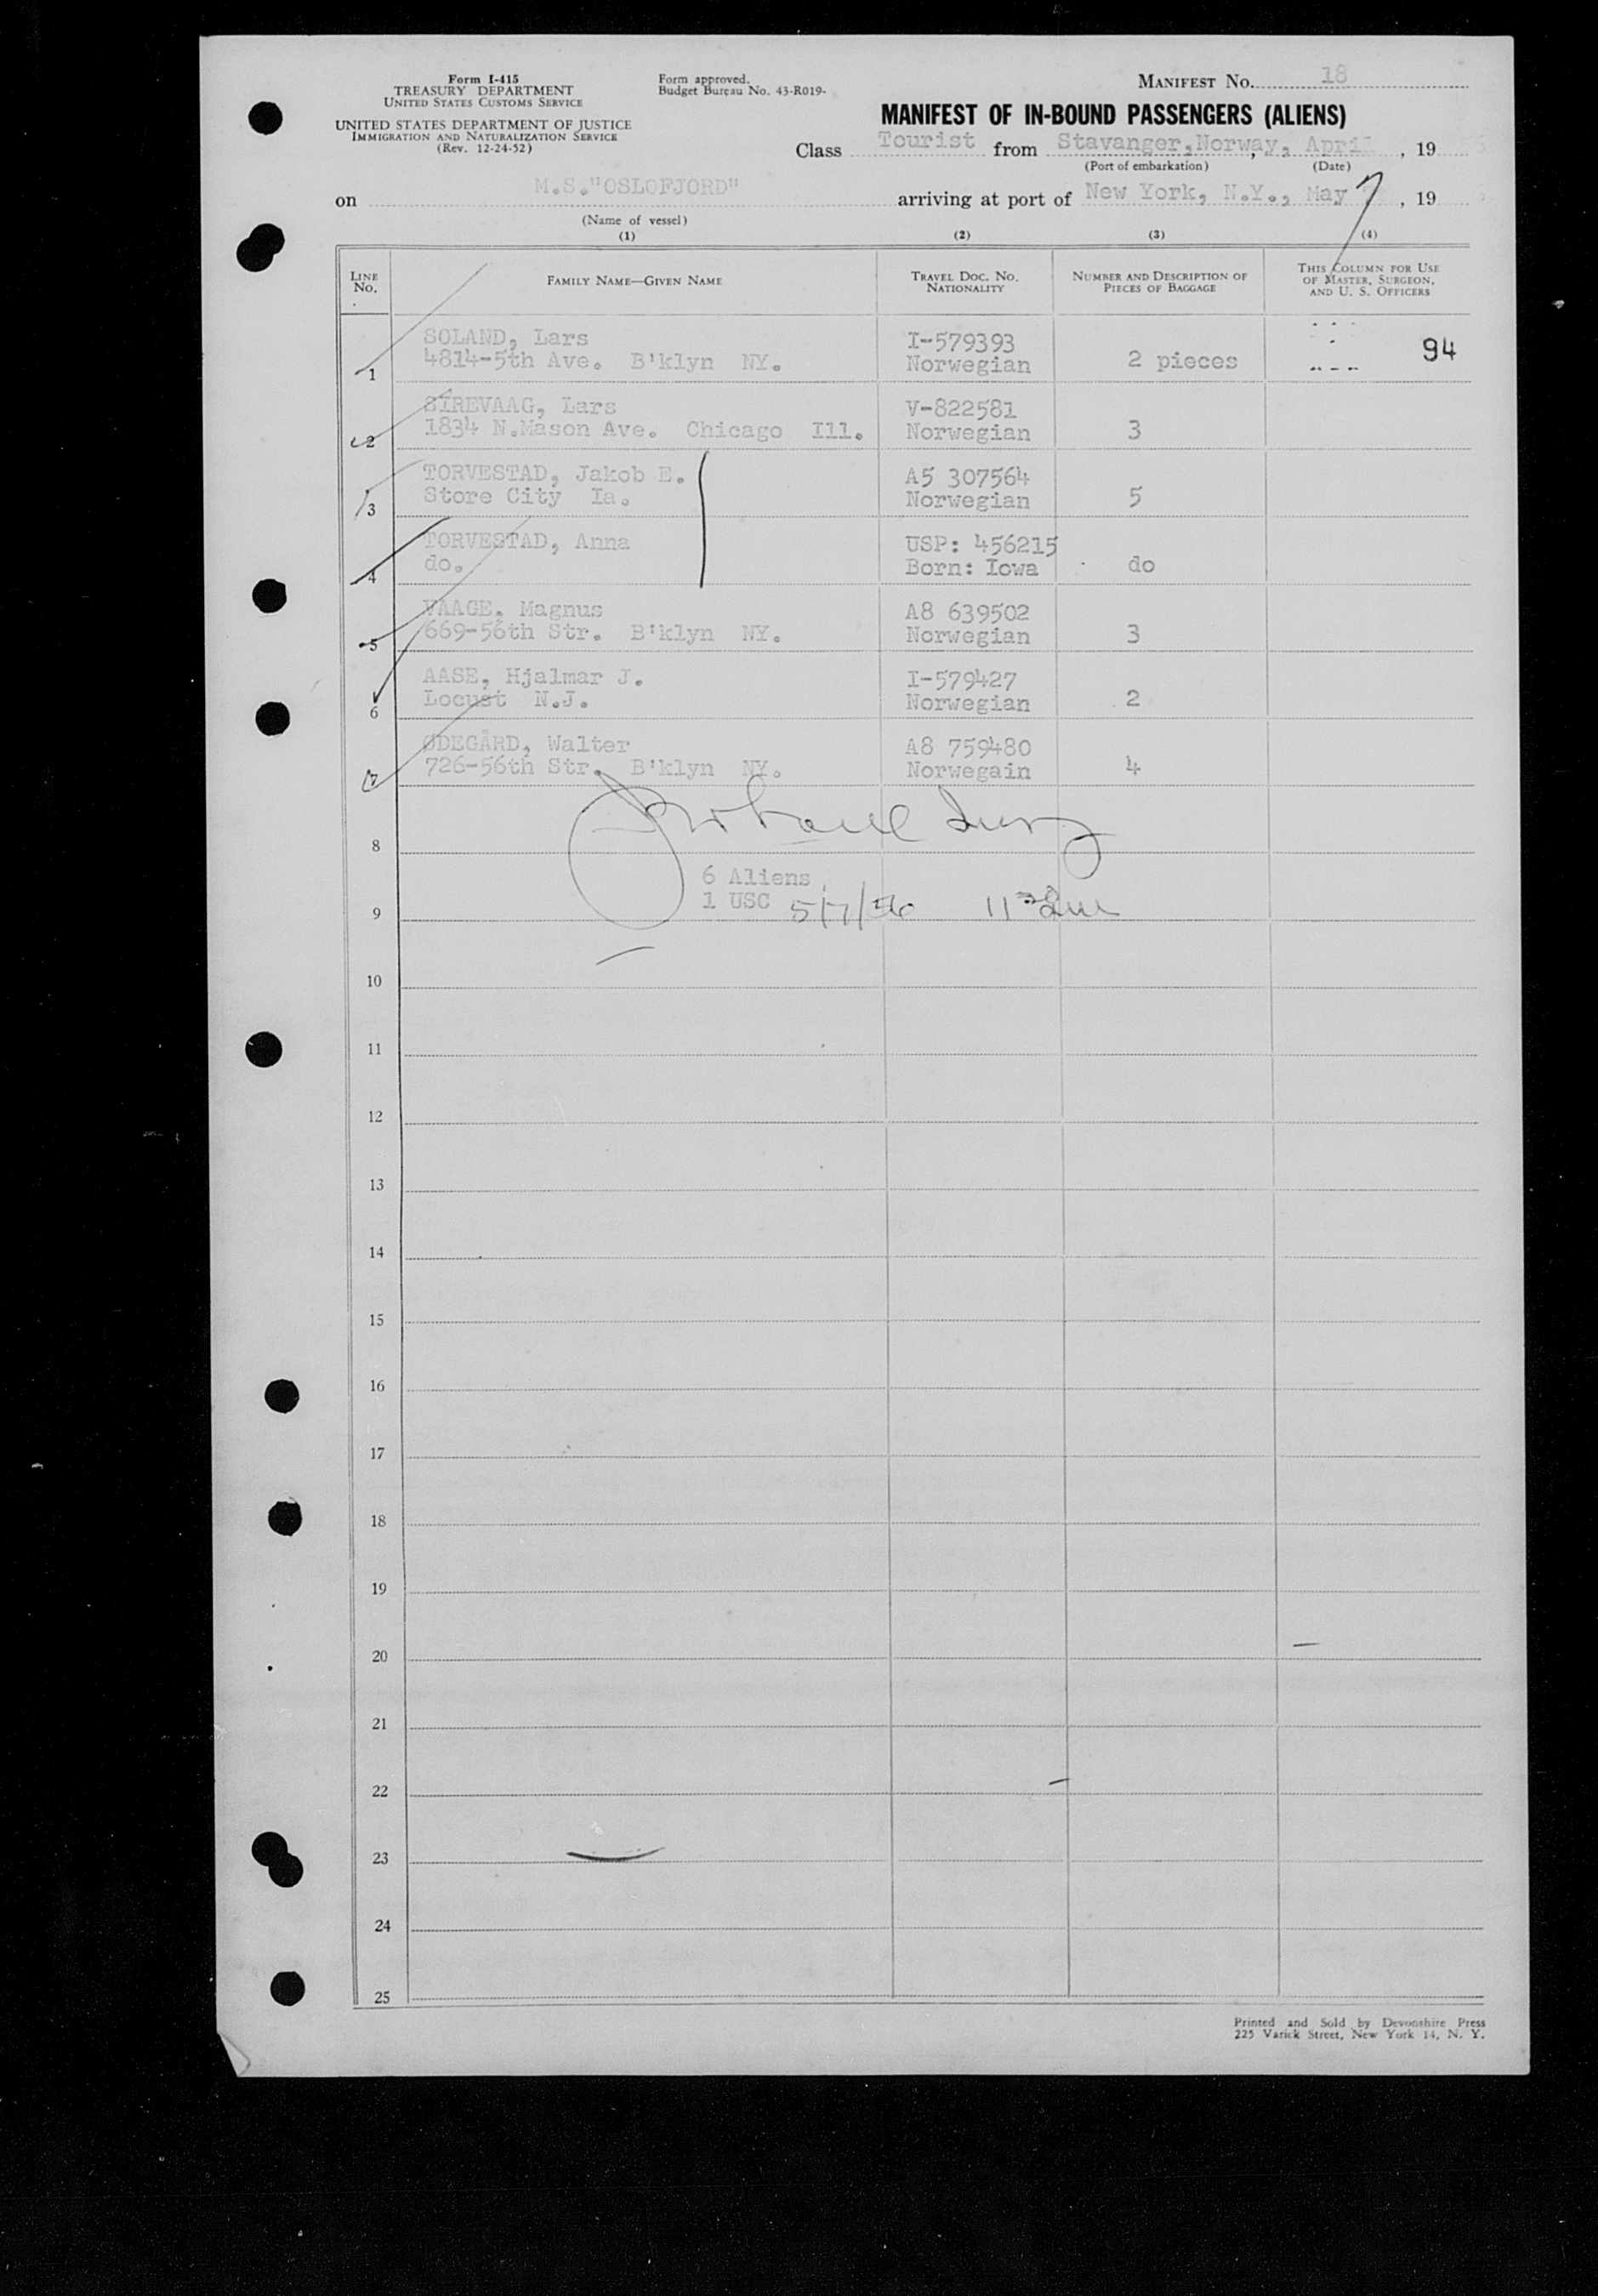 Form I-415
TREASURY DEPARTMENT
UNITED STATES CUSTOMS SERVICE
UNITED STATES DEPARTMENT OF JUSTICE
IMMIGRATION AND NATURALIZATION SERVICE
(Rev. 12-24-52)
Form approved.
Budget Bureau No. 43-R019-
MANIFEST NO. 18
MANIFEST OF IN-BOUND PASSENGERS (ALIENS)
Class Tourist from Stavanger,Norway, April , 19
(Port of embarkation) (Date)
on M.S."OSLOFJORD" arriving at port of New York, N.Y., May 7 , 19
(Name of vessel)
(1) (2) (3) (4)
LINE NO. FAMILY NAME—GIVEN NAME TRAVEL DOC. NO. NATIONALITY NUMBER AND DESCRIPTION OF PIECES OF BAGGAGE THIS COLUMN FOR USE OF MASTER, SURGEON, AND U. S. OFFICERS
SOLAND, Lars I-579393 94
1 4814-5th Ave. B'klyn NY. Norwegian 2 pieces
SIREVAAG, Lars V-822581
2 1834 N.Mason Ave. Chicago Ill. Norwegian 3
TORVESTAD, Jakob E. A5 307564
3 Store City Ia. Norwegian 5
TORVESTAD, Anna USP: 456215
4 do. Born: Iowa do
VAAGE, Magnus A8 639502
5 669-56th Str. B'klyn NY. Norwegian 3
AASE, Hjalmar J. I-579427
6 Locust N.J. Norwegian 2
ØDEGÅRD, Walter A8 759480
7 726-56th Str. B'klyn NY. Norwegain 4
8
6 Aliens
9 1 USC 5/7/56
10
11
12
13
14
15
16
17
18
19
20
21
22
23
24
25
Printed and Sold by Devonshire Press
225 Varick Street, New York 14, N. Y.